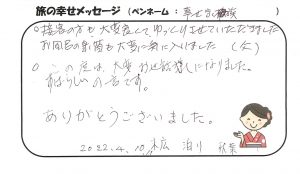 旅の幸せメッセージ (ペンネーム : 幸せさ )
○接客の方も大変良くてゆっくりさせていただきました
お風呂の も大変気に入りました (父)
○この度は、大変お世話になりました。
すばらしい宿です。
ありがとうございました。
2022.4.10 末広 泊り 秋葉